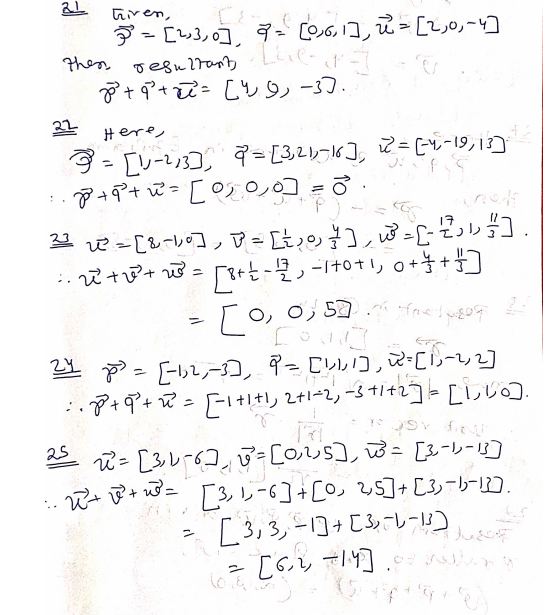 21 Given,
p⃗ = [2,3,0], q⃗ = [0,6,1], u⃗ = [2,0,-4]
then resultant,
p⃗ + q⃗ + u⃗ = [4, 9, -3].
22 Here,
p⃗ = [1,-2,3], q⃗ = [3,21,-16], u⃗ = [-4,-19,13]
∴ p⃗ + q⃗ + u⃗ = [0, 0, 0] = 0⃗.
23 u⃗ = [8,-1,0], v⃗ = [1/2, 0, 4/3], w⃗ = [-17/2, 1, 11/3].
∴ u⃗ + v⃗ + w⃗ = [8+1/2-17/2, -1+0+1, 0+4/3+11/3]
= [0, 0, 5].
24 p⃗ = [-1,2,-3], q⃗ = [1,1,1], u⃗ = [1,-2,2]
∴ p⃗ + q⃗ + u⃗ = [-1+1+1, 2+1-2, -3+1+2] = [1,1,0].
25 u⃗ = [3,1,-6], v⃗ = [0,2,5], w⃗ = [3,-1,-13]
∴ u⃗ + v⃗ + w⃗ = [3,1,-6] + [0, 2,5] + [3,-1,-13].
= [3, 3, -1] + [3,-1,-13]
= [6,2, -14].